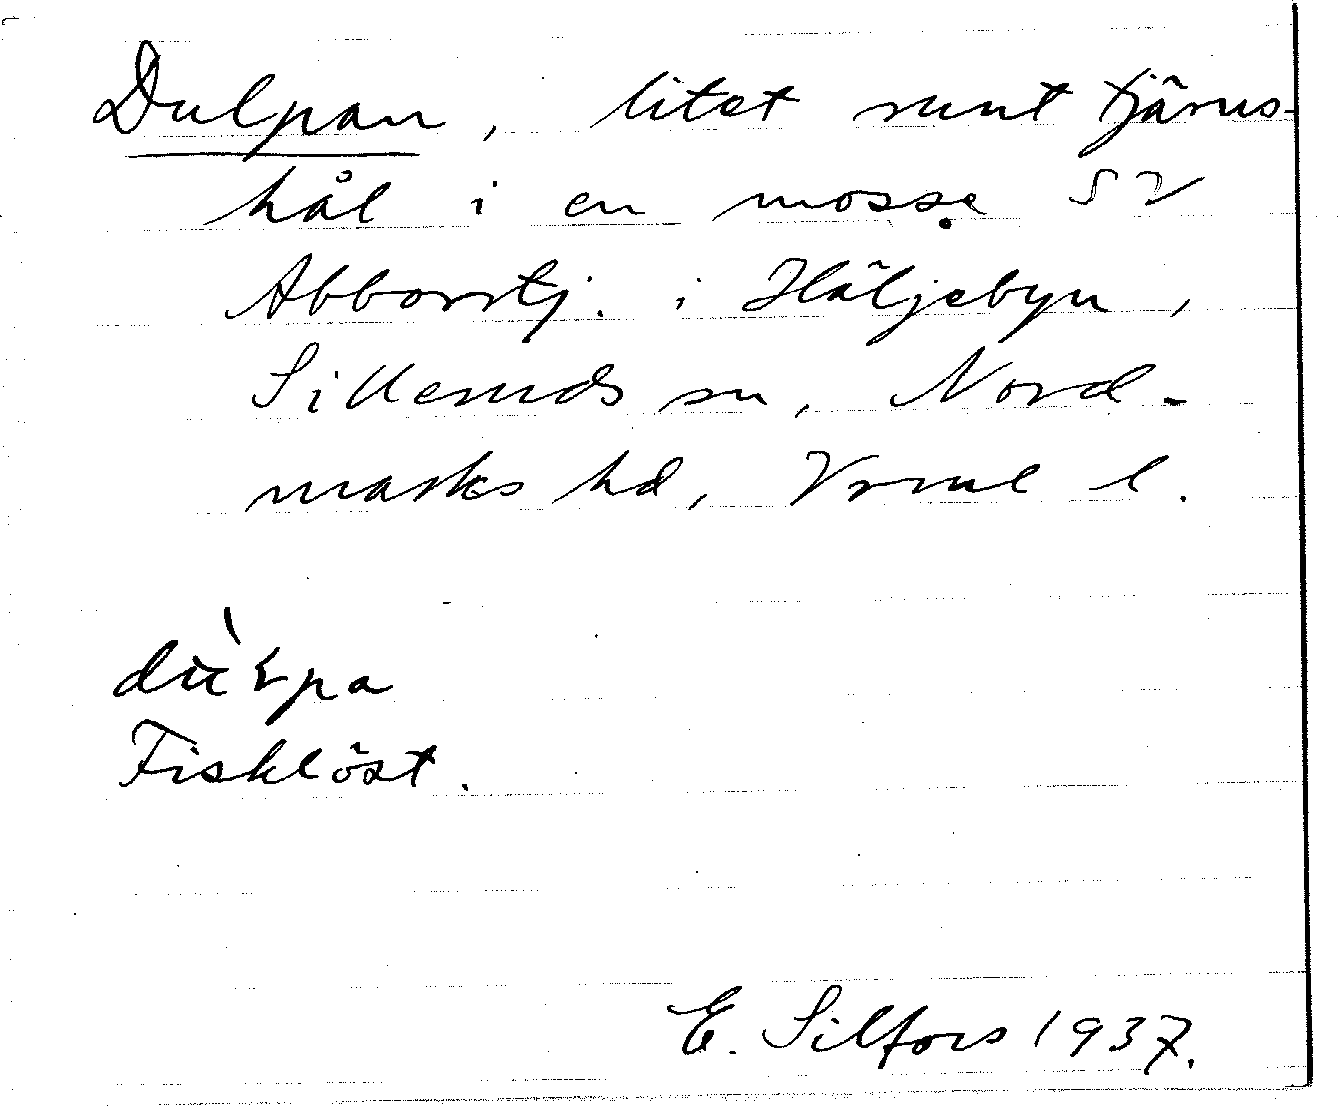 Dulpan, litet runt tjärns-
hål i en mosse SV
Abborrtj. i Häljebyn,
Silleruds sn, Nord-
marks hd, Vrml l.
Fisklöst.
E. Silfors 1937.